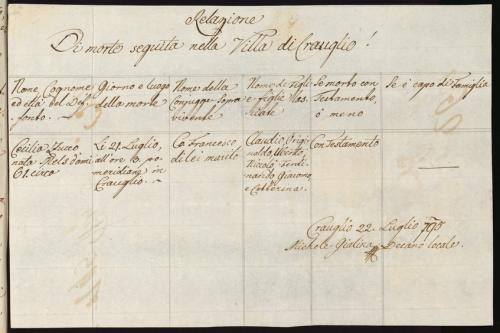 Relazione
Di morte seguita nella Villa di Crauglio!
Nome, Cognome
ed età del De-
fonto.
Giorno e luogo
della morte
Nome della
Conjugge Sopra
vivente
Nome di figli
e figlie las
ciate
Se morto con
Testamento,
ò meno
Se è capo di Famiglia
Cecilia
nata
61. circa
Li 21. Luglio,
all'ore 6. po
meridiane in
Crauglio.
Co: Francesco
di lei marito
Claudio, Origi
naldo, Uberto,
Niccolò, Ferdi
nando, Giacomo,
e Catterina.
Con Testamento
Crauglio 22. Luglio
Michele Decano locale.